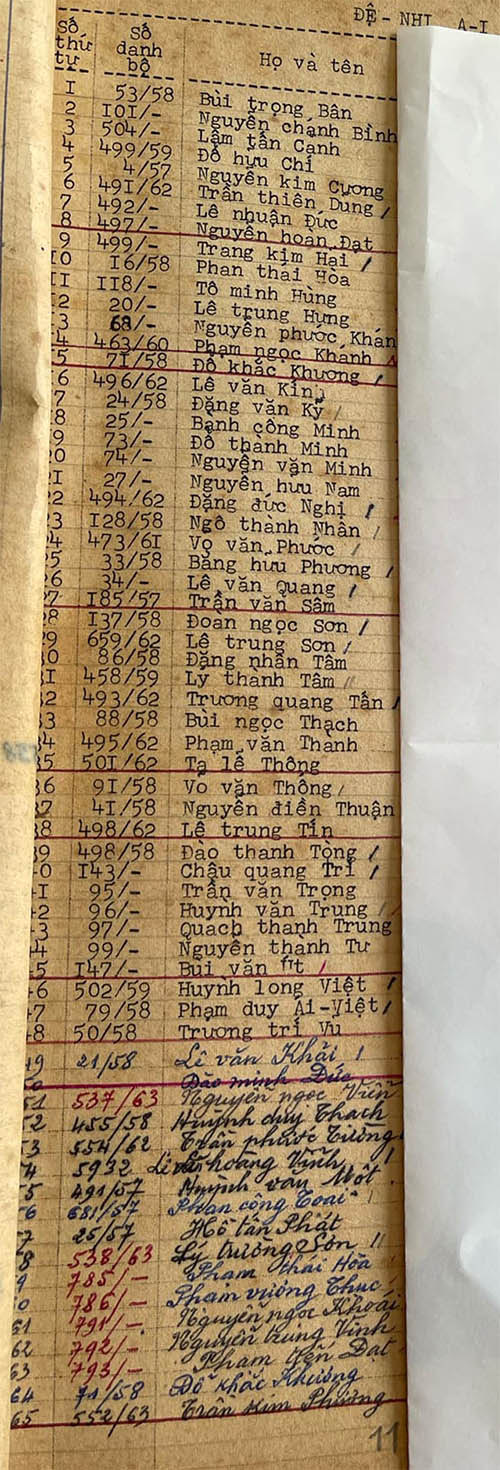 ĐỆ - NHỊ A-I
Số thứ tự Số danh bộ Họ và tên
1 53/58 Bùi trọng Bân
2 101/- Nguyễn chánh Bình
3 504/- Lâm tấn Cạnh
4 499/59 Đỗ hựu Chí
5 4/57 Nguyễn kim Cương
6 491/62 Trần thiên Dung
7 492/- Lê nhuận Đức
8 497/- Nguyễn hoan Đạt
9 499/- Trang kim Hai
10 16/58 Phan thái Hòa
11 118/- Tô minh Hùng
2 20/- Lê trung Hưng
3 68/- Nguyễn phước Khán
4 463/60 Phạm ngọc Khánh
5 71/58 Đỗ khắc Khương
6 496/62 Lê văn Kín
7 24/58 Đặng văn Kỹ
8 25/- Bành công Minh
9 73/- Đỗ thành Minh
0 74/- Nguyễn văn Minh
1 27/- Nguyễn hưu Nam
22 494/62 Đặng đức Nghị
3 128/58 Ngô thành Nhân
4 473/61 Vo văn Phước
5 33/58 Bàng hưu Phương
6 34/- Lê văn Quang
7 185/57 Trần văn Sâm
8 137/58 Đoan ngọc Sơn
9 659/62 Lê trung Sơn
0 86/58 Đặng nhân Tâm
1 458/59 Lý thành Tâm
2 493/62 Trương quang Tấn
3 88/58 Bùi ngọc Thạch
4 495/62 Phạm văn Thành
5 501/62 Tạ lê Thông
6 91/58 Vo văn Thông
7 41/58 Nguyễn điền Thuận
8 498/62 Lê trung Tín
9 498/58 Đào thanh Tòng
0 143/- Châu quang Trí
1 95/- Trần văn Trọng
2 96/- Huỳnh văn Trung
3 97/- Quach thanh Trung
4 99/- Nguyễn thanh Tư
5 147/- Bùi văn
46 502/59 Huỳnh long Việt
47 79/58 Phạm duy Ái-Việt
48 50/58 Trương trí Vũ
49 21/58 Lê văn Khải
Đào minh Đức
51 537/63 Nguyễn ngọc Viễn
2 455/58 Huỳnh duy Thạch
3 554/62 Trần phước Tường
4 5932 hoàng Vĩnh
5 491/57 Huỳnh văn Một
6 681/57 Phan công Toai
7 25/57 Hồ tấn Phát
8 538/63 Lý trường Sơn
9 785/- Phạm thái Hòa
0 786/- Phạm vương Thục
61 791/- Nguyễn ngọc Khoái
62 792/- Nguyễn trung Vinh
63 793/- Phạm tiến Đạt
64 71/58 Đỗ khắc Khương
65 552/63 Trần kim Phương
11